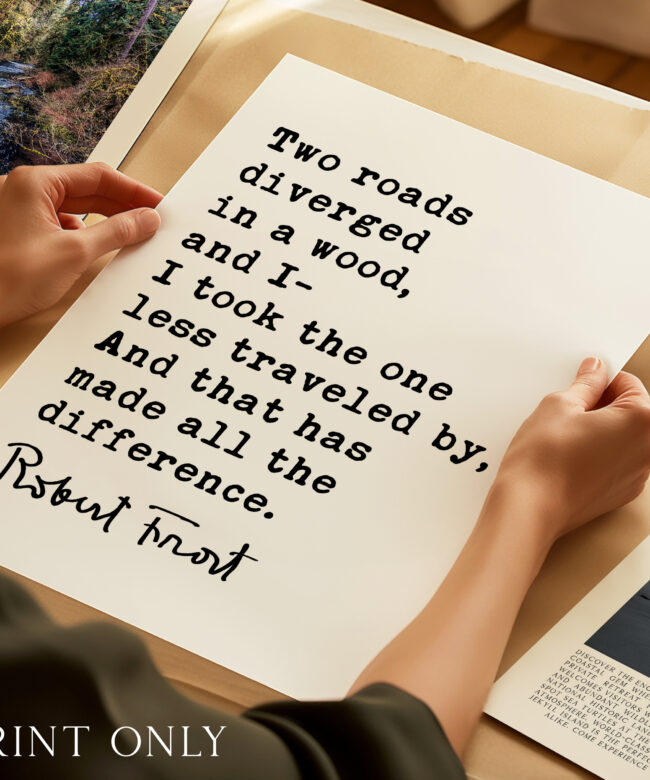 Two roads
diverged
in a wood,
and I-
I took the one
less traveled by,
And that has
made all the
difference.
Robert Frost
RINT ONLY
DISCOVER THE
COASTAL GEM
PRIVATE RETREAT
WELCOMES VISITORS
AND ABUNDANT
NATIONAL HISTORIC
SPOT SEA TURTLES AT THE
ATMOSPHERE, WORLD-CLASS
JEKYLL ISLAND IS THE
ALIKE. COME EXPERIENCE